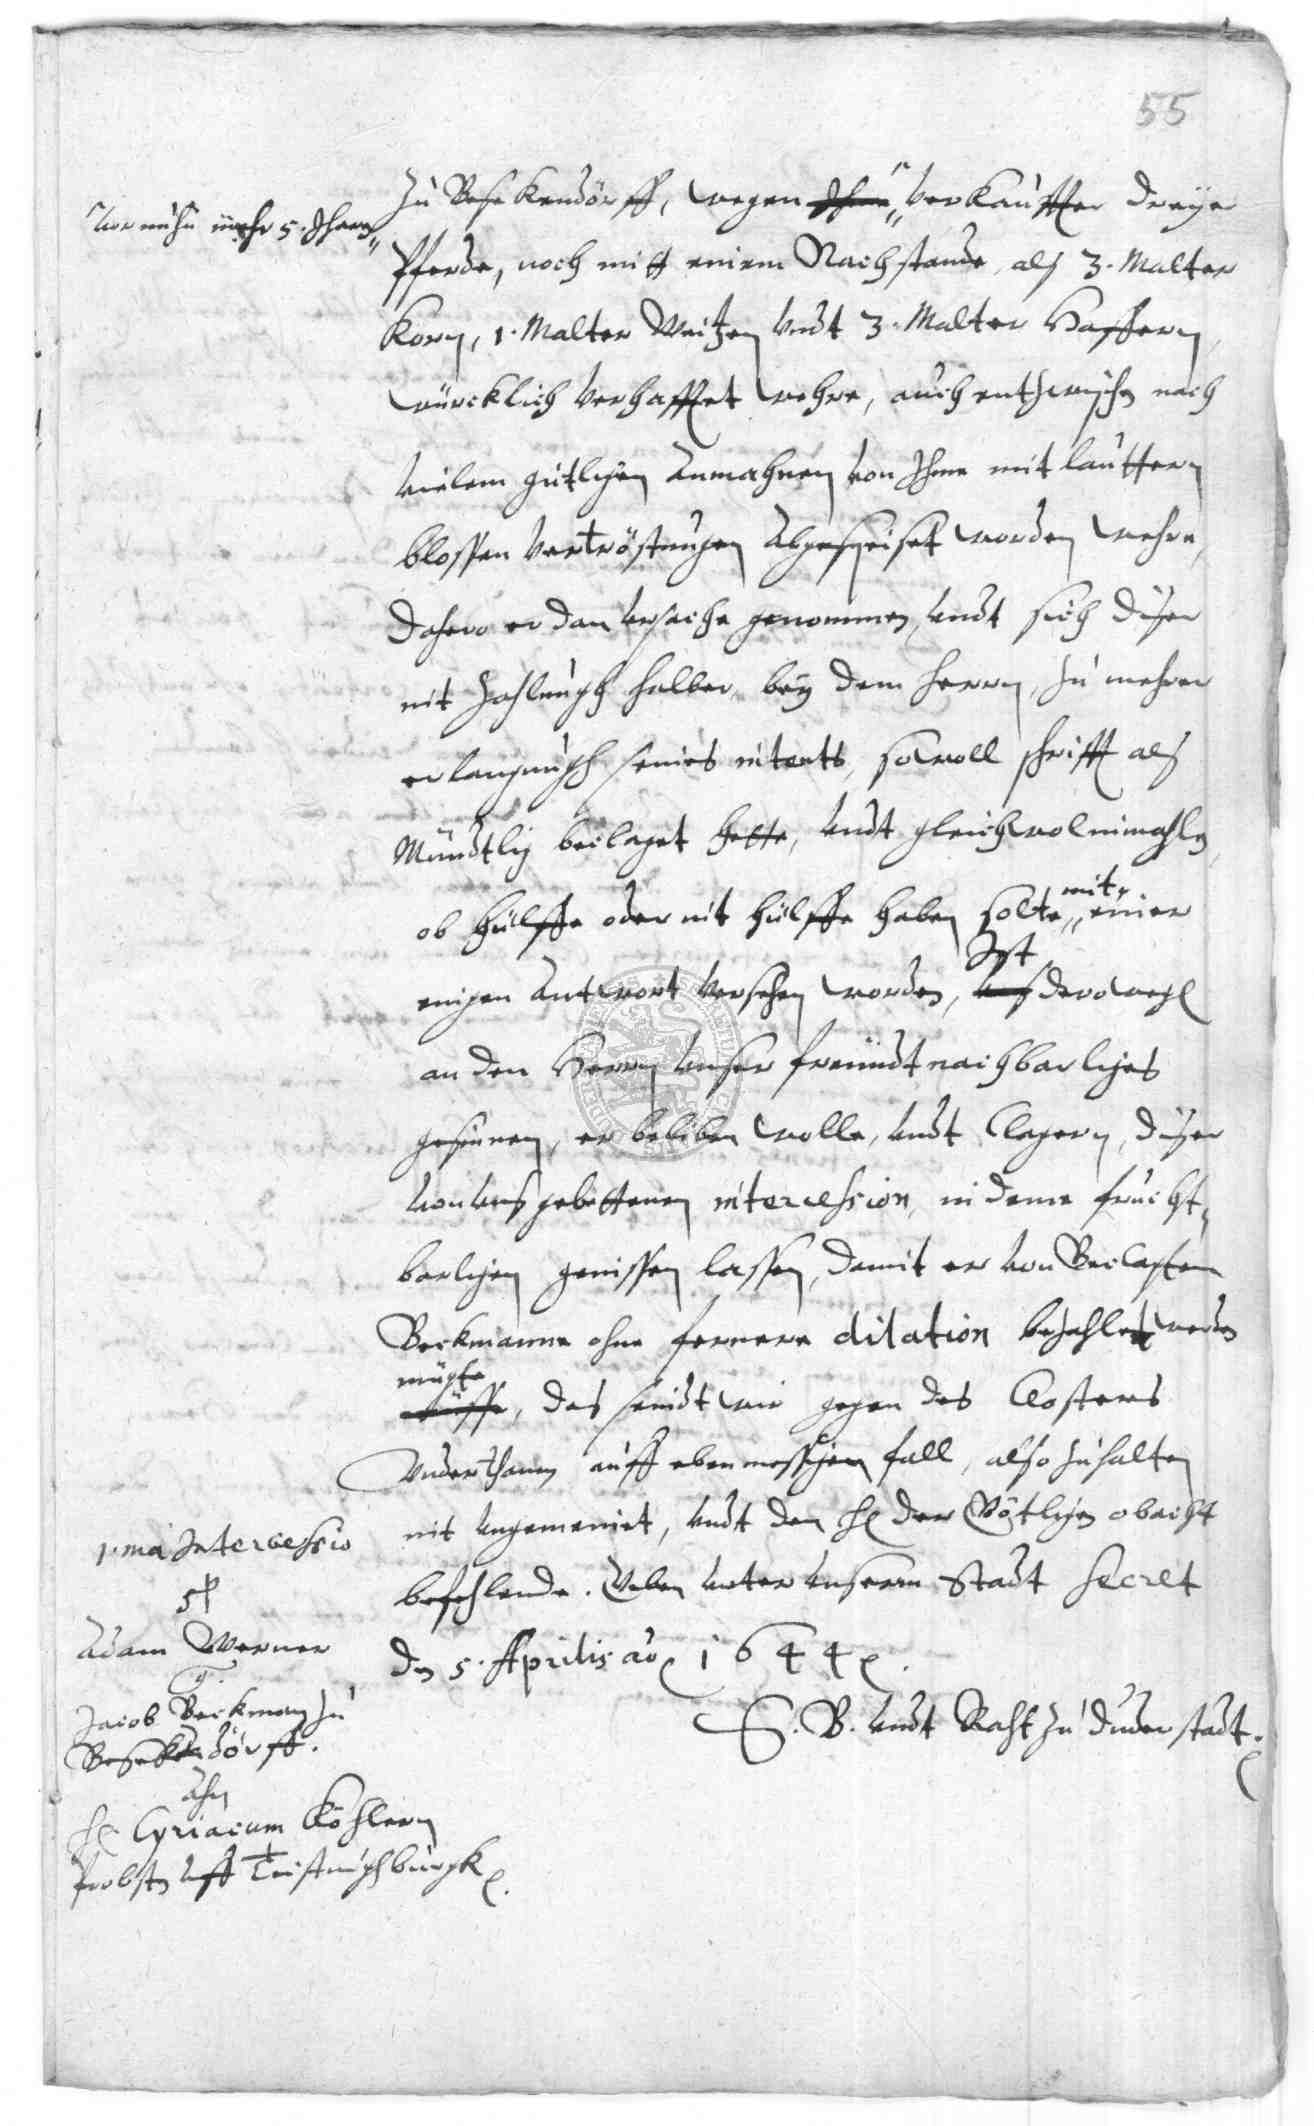 55
zu Besekendörff, wegen Ihme verkaufter dreyer
vor nuhn mehr 5. Jharen
Pferde, noch mitt einem Nachstande als 3. Malter
Korn, 1. Malter Weitzen undt 3. Malter Haffern,
würcklich verhafftet wehre, auch entzwischen nach
vielem gütlichen Anmahnen von Ihme mit lauttern
blossen vertröstungen abgespeiset worden wehre,
dahero er dan ursache genommen, undt sich diser
nit Zahlungh halber, bey dem herrn, zu mehrer
erlangungh seines intents, sowoll schrifft als
Mündtlich beclaget hette, undt gleichwol nimahls,
ob hülffe oder nit hülffe haben solte, mit einer
einigen Antwort versehen worden, Ist derowegen
an den Herrn unser freundtnachbarliches
gesinnen, er belieben wolle, undt Clagern, diser
von uns gebettenen intercession, in deme frucht-
barlichen genissen lassen, damit er von Beclagtem
Beckmanne ohne fernere dilation bezahlet werden
mügte
müsse, das seindt wir gegen des Closters
Underthanen auff ebenmessigen fall, also zuhalten
nit ungemeint, undt den H. der Götlichen obacht
befehlende. Geben unter unserm Stadt Secret
den 5. Aprilis ao. 1644.
E. B. undt Raht zu Duderstadt.
1.ma Intercessio
Adam Werner
Jacob Beckman zu
Besekendörff.
Ahn
H. Cyriacum Köhlern
Probsten uff Teistunghburgk.